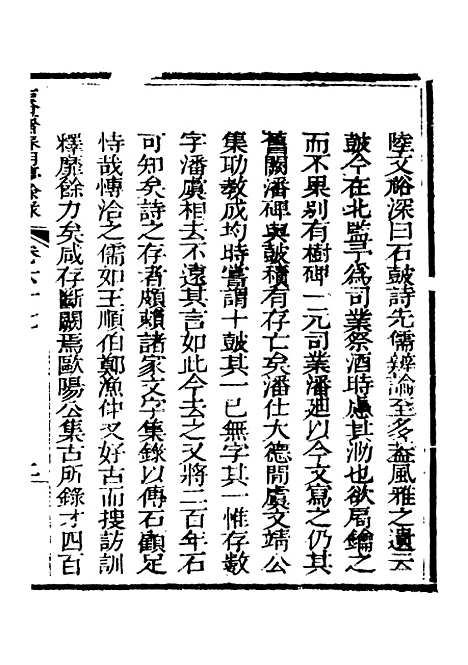 陸文裕深曰石鼓詩先儒辨論至多葢風雅之遺云
鼓今在北監予為司業祭酒時慮其泐也欲局鑰之
而不果别有樹碑一元司業潘廸以今文寫之仍其
舊闕潘碑與鼓積有存亡矣潘仕大德間虞文靖公
集助教成均時嘗謂十鼓其一已無字其一惟存數
字潘虞相去不遠其言如此今去之又將二百年石
可知矣詩之存者頗賴諸家文字集錄以傳石顧足
恃哉愽洽之儒如王順伯鄭漁仲又好古而搜訪訓
釋靡餘力矣咸存斷闕焉歐陽公集古所錄才四百
卷六十七